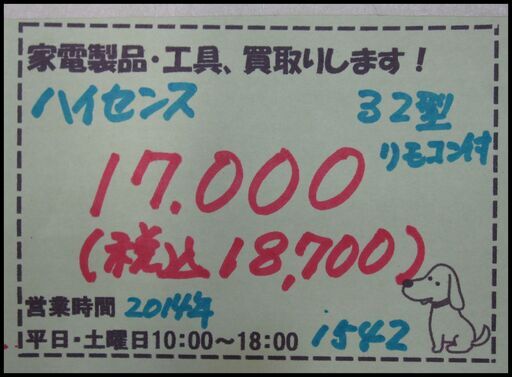 家電製品・工具、買取りします!
ハイセンス 32型
リモコン付
17.000
(税込18,700)
営業時間 2014年
平日・土曜日10:00～18:00 1542